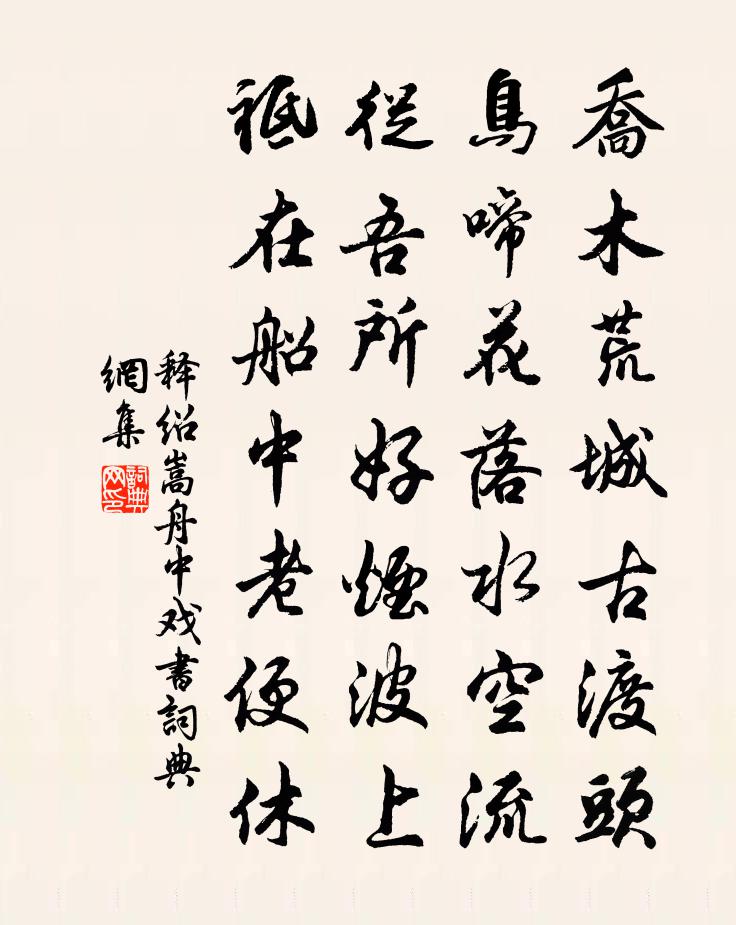 喬木荒城古渡頭
鳥啼花落水空流
從吾所好煙波上
祗在船中老便休
释绍嵩舟中戏書詞典
網集
詞典
网印